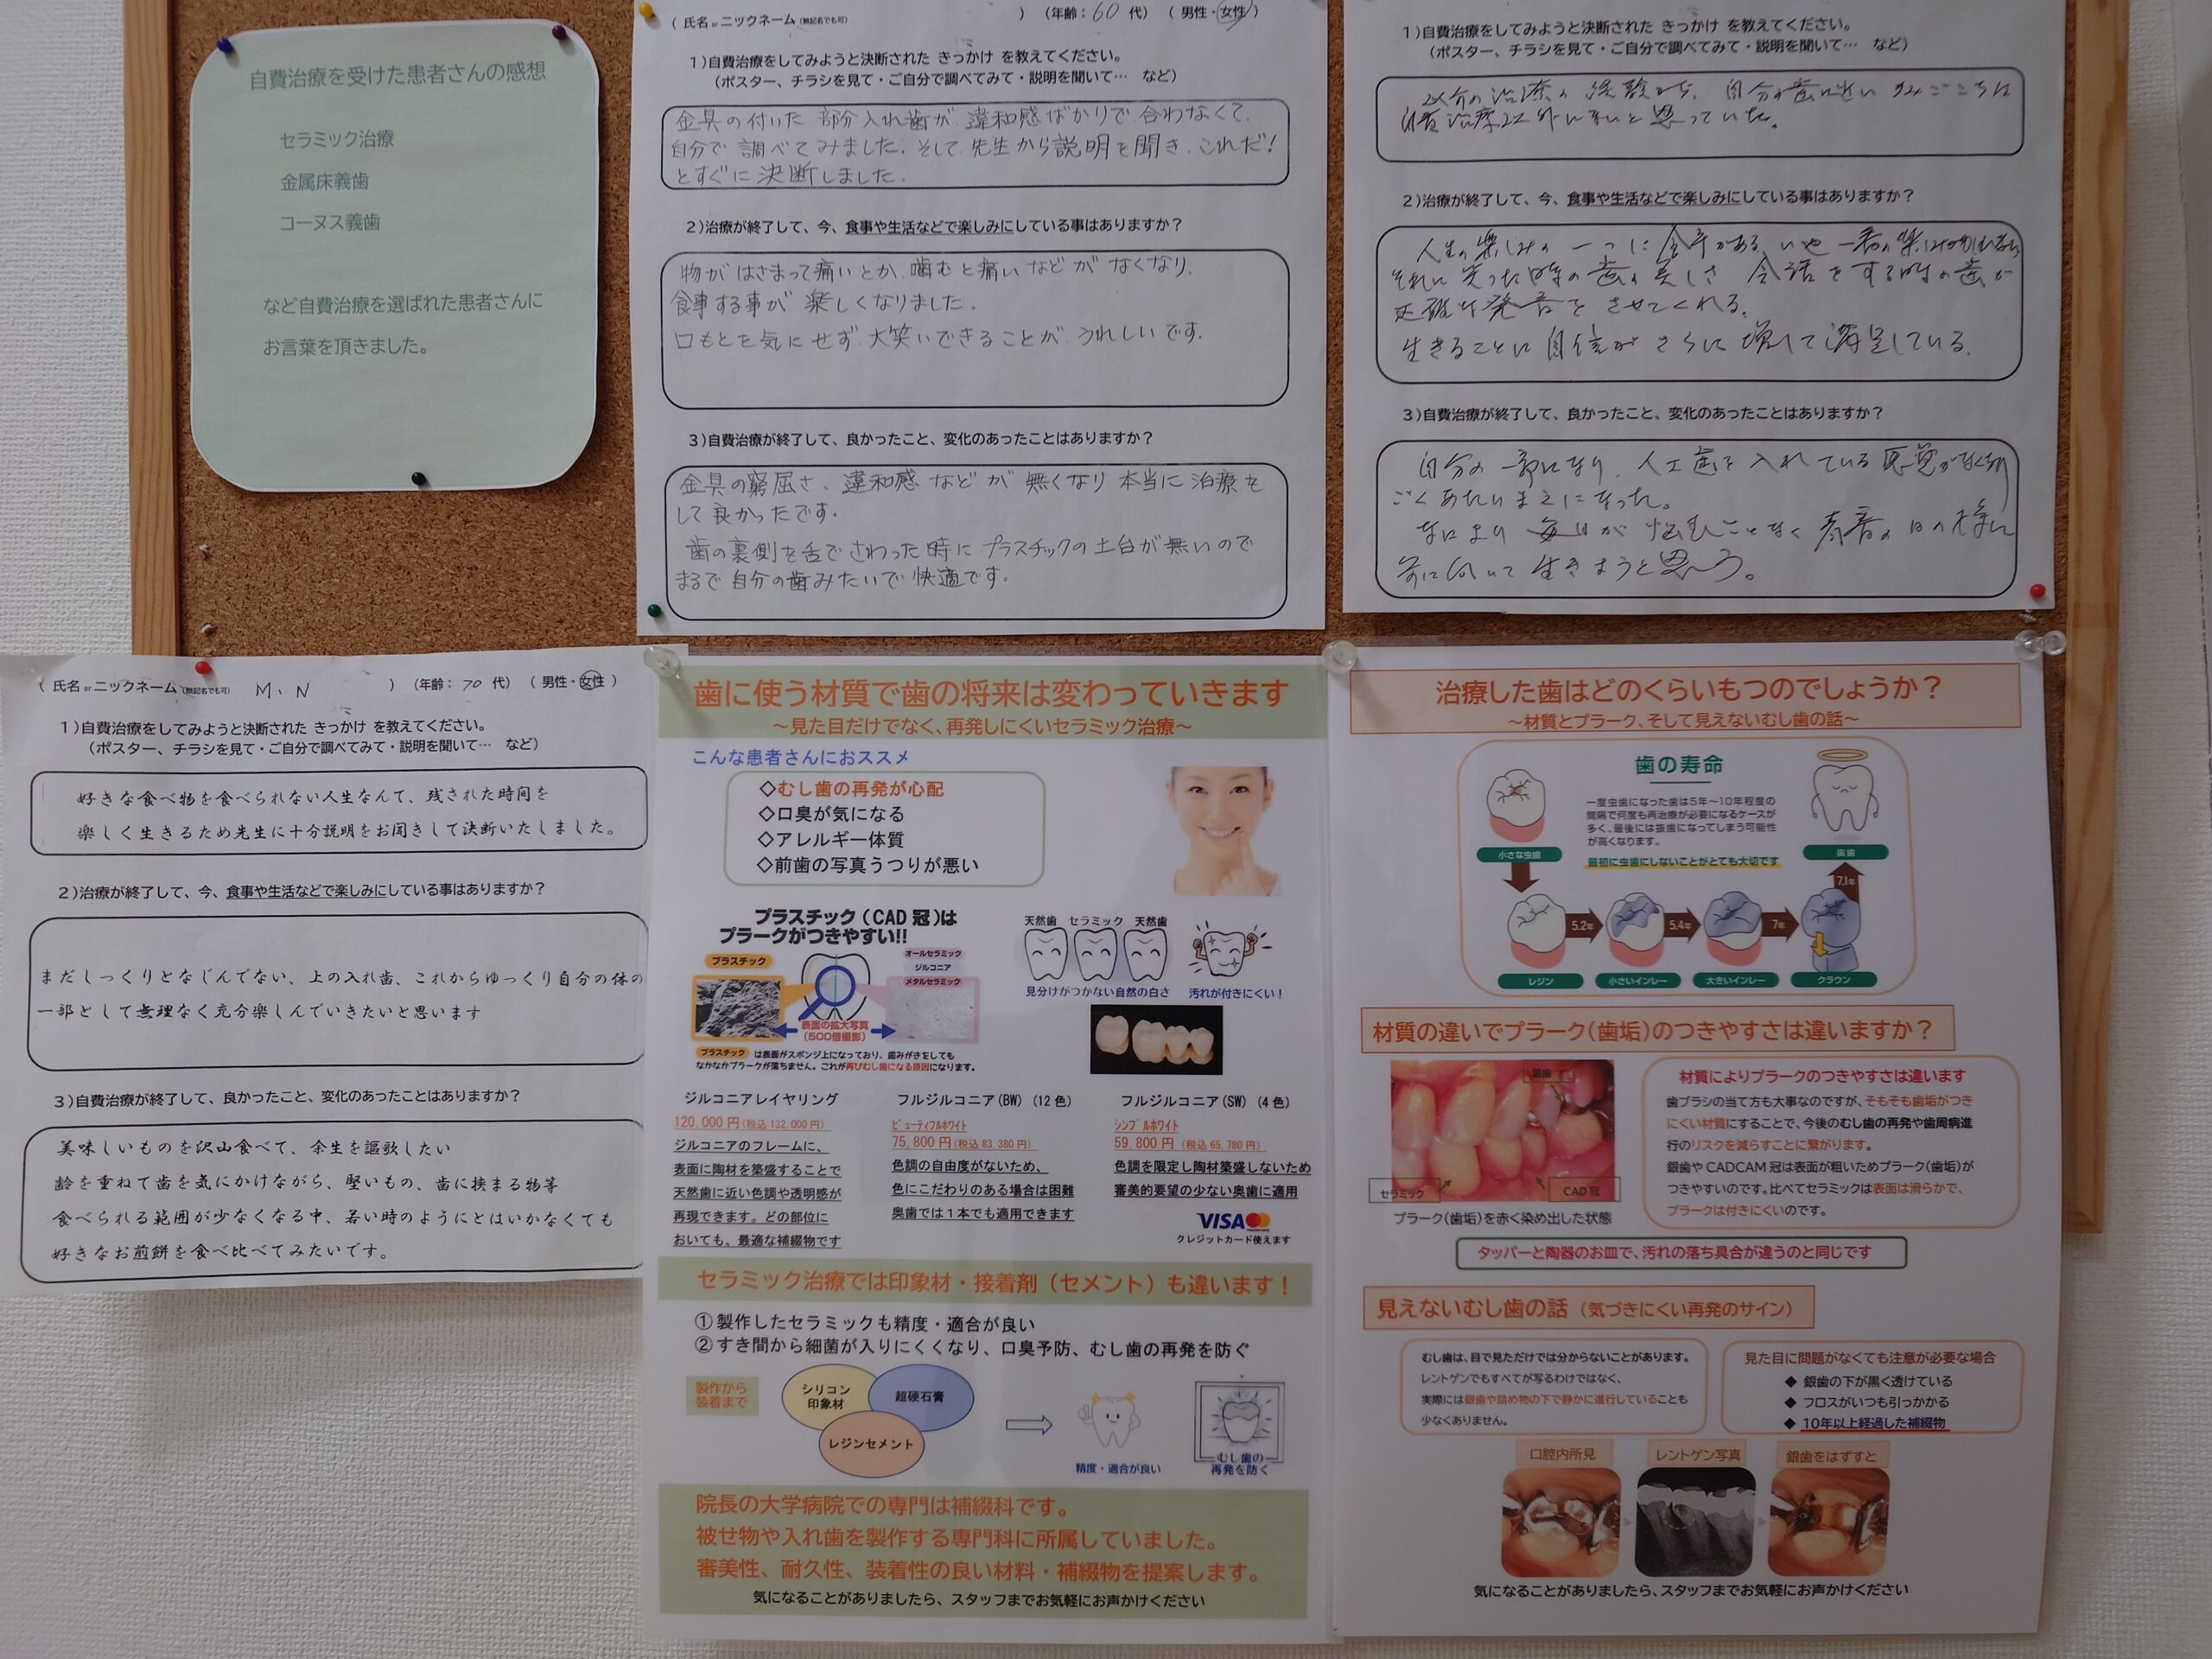 自費治療を受けた患者さんの感想
セラミック治療
金属床義歯
コーヌス義歯
など自費治療を選ばれた患者さんに
お言葉を頂きました。
( 氏名 or ニックネーム (無記名でも可) ) (年齢: 60 代) ( 男性・女性 )
1)自費治療をしてみようと決断された きっかけ を教えてください。
(ポスター、チラシを見て・ご自分で調べてみて・説明を聞いて… など)
金具の付いた 部分入れ歯が 違和感ばかりで 合わなくて、
自分で 調べてみました。そして 先生から説明を聞き、これだ!
とすぐに 決断しました。
2)治療が終了して、今、食事や生活などで楽しみにしている事はありますか?
物が はさまって痛いとか、噛むと痛い などが なくなり、
食事する事が 楽しくなりました。
口もとを気にせず 大笑いできることが うれしいです。
3)自費治療が終了して、良かったこと、変化のあったことはありますか?
金具の窮屈さ、違和感 などが 無くなり 本当に 治療を
して 良かったです。
歯の裏側を舌で さわった時に プラスチックの土台が無いので
まるで 自分の歯みたいで 快適です。
1)自費治療をしてみようと決断された きっかけ を教えてください。
(ポスター、チラシを見て・ご自分で調べてみて・説明を聞いて… など)
自費治療以外にないと思っていた。
2)治療が終了して、今、食事や生活などで楽しみにしている事はありますか?
人生の楽しみの一つに食事がある。
それに笑った時の歯の美しさ 会話をする時の歯が
正確な発音をさせてくれる。
生きることに自信がさらに増して満足している。
3)自費治療が終了して、良かったこと、変化のあったことはありますか?
自分の一部になり、人工歯を入れている感覚がなくなり
ごくあたりまえになった。
なにより毎日が悩むことなく青春の日の様に
前に向いて生きようと思う。
( 氏名 or ニックネーム (無記名でも可) M、N ) (年齢: 70 代) ( 男性・女性 )
1)自費治療をしてみようと決断された きっかけ を教えてください。
(ポスター、チラシを見て・ご自分で調べてみて・説明を聞いて… など)
好きな食べ物を食べられない人生なんて、残された時間を
楽しく生きるため先生に十分説明をお聞きして決断いたしました。
2)治療が終了して、今、食事や生活などで楽しみにしている事はありますか?
まだしっくりとなじんでない、上の入れ歯、これからゆっくり自分の体の
一部として無理なく充分楽しんでいきたいと思います
3)自費治療が終了して、良かったこと、変化のあったことはありますか?
美味しいものを沢山食べて、余生を謳歌したい
齢を重ねて歯を気にかけながら、堅いもの、歯に挟まる物等
食べられる範囲が少なくなる中、若い時のようにとはいかなくても
好きなお煎餅を食べ比べてみたいです。
歯に使う材質で歯の将来は変わっていきます
～見た目だけでなく、再発しにくいセラミック治療～
こんな患者さんにおススメ
◇むし歯の再発が心配
◇口臭が気になる
◇アレルギー体質
◇前歯の写真うつりが悪い
プラスチック(CAD 冠)は
プラークがつきやすい!!
プラスチック
オールセラミック
ジルコニア
メタルセラミック
表面の拡大写真
(500倍撮影)
プラスチック は表面がスポンジ上になっており、歯みがきをしても
なかなかプラークが落ちません。これが再びむし歯になる原因になります。
天然歯 セラミック 天然歯
見分けがつかない自然の白さ
汚れが付きにくい!
ジルコニアレイヤリング
120,000 円(税込 132,000 円)
ジルコニアのフレームに、
表面に陶材を築盛することで
天然歯に近い色調や透明感が
再現できます。どの部位に
おいても、最適な補綴物です
フルジルコニア(BW) (12 色)
ビューティフルホワイト
75,800 円(税込 83,380 円)
色調の自由度がないため、
色にこだわりのある場合は困難
奥歯では1本でも適用できます
フルジルコニア(SW) (4 色)
シンプルホワイト
59,800 円 (税込 65,780 円)
色調を限定し陶材築盛しないため
審美的要望の少ない奥歯に適用
VISA
クレジットカード使えます
セラミック治療では印象材・接着剤(セメント)も違います!
①製作したセラミックも精度・適合が良い
②すき間から細菌が入りにくくなり、口臭予防、むし歯の再発を防ぐ
製作から
装着まで
シリコン
印象材
超硬石膏
レジンセメント
精度・適合が良い
むし歯の
再発を防ぐ
院長の大学病院での専門は補綴科です。
被せ物や入れ歯を製作する専門科に所属していました。
審美性、耐久性、装着性の良い材料・補綴物を提案します。
気になることがありましたら、スタッフまでお気軽にお声かけください
治療した歯はどのくらいもつのでしょうか?
～材質とプラーク、そして見えないむし歯の話～
歯の寿命
一度虫歯になった歯は5年～10年程度の
間隔で何度も再治療が必要になるケースが
多く、最後には抜歯になってしまう可能性
が高くなります。
最初に虫歯にしないことがとても大切です
小さな虫歯
抜歯
7.1年
5.2年
5.4年
7年
レジン
小さいインレー
大きいインレー
クラウン
材質の違いでプラーク(歯垢)のつきやすさは違いますか?
銀歯
セラミック
CAD 冠
プラーク(歯垢)を赤く染め出した状態
材質によりプラークのつきやすさは違います
歯ブラシの当て方も大事なのですが、そもそも歯垢がつき
にくい材質にすることで、今後のむし歯の再発や歯周病進
行のリスクを減らすことに繋がります。
銀歯や CADCAM 冠は表面が粗いためプラーク(歯垢)が
つきやすいのです。比べてセラミックは表面は滑らかで、
プラークは付きにくいのです。
タッパーと陶器のお皿で、汚れの落ち具合が違うのと同じです
見えないむし歯の話 (気づきにくい再発のサイン)
むし歯は、目で見ただけでは分からないことがあります。
レントゲンでもすべてが写るわけではなく、
実際には銀歯や詰め物の下で静かに進行していることも
少なくありません。
見た目に問題がなくても注意が必要な場合
◆ 銀歯の下が黒く透けている
◆ フロスがいつも引っかかる
◆ 10年以上経過した補綴物
口腔内所見
レントゲン写真
銀歯をはずすと
気になることがありましたら、スタッフまでお気軽にお声かけください